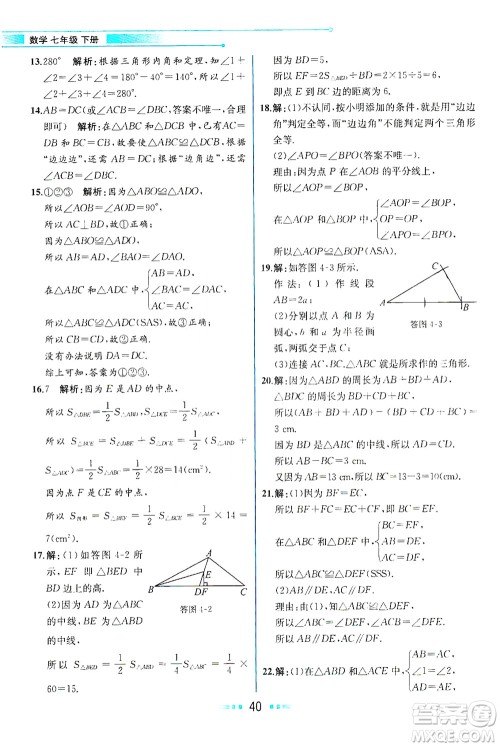 数学 七年级 下册
13.280° 解析：根据三角形内角和定理，知∠1+
∠2+∠3+∠4=280°.
14.AB=DC(或∠ACB=∠DBC,答案不唯一,合理
即可) 解析：在△ABC和△DCB中,因为∠ABC
=∠DCB,BC=CB,所以要使△ABC≌△DCB,
根据“边边边”，可添加AB=DC；根据“角边角”，
可添加∠ACB=∠DBC.
15.①②③ 解析：因为△ABO≌△ADO,
所以∠AOB=∠AOD=90°,
所以AC⊥BD,故①正确.
因为△ABO≌△ADO,
所以AB=AD,∠BAO=∠DAO.
在△ABC和△ADC中,
AB=AD,
∠BAC=∠DAC,
AC=AC,
所以△ABC≌△ADC(SAS),故③正确.
所以CB=CD,故②正确.
没有依据说明DA=DC.
综上可知,正确的有①②③.
16.7 解析：因为点E是AD的中点,
所以S△BDE=1/2 S△ABD,S△DCE=1/2 S△ADC,
所以S△BCE=1/2 S△ABC=1/2×28=14(cm²).
因为点F是CE的中点,
所以S阴影=1/2 S△BCE=1/2×14=
7(cm²).
17.解：(1)如答图4-2，
EF即是△BED中
BD边上的高.
(2)因为AD为△ABC
的中线,BE为△ABD
的中线,
A
E
B
DF
C
答图4-2
所以S△BDE=1/4 S△ABC=1/4×
60=15.
因为BD=5,
所以EF=2S△BDE÷BD=2×15÷5=6.
即点E到BC边的距离为6.
18.解：(1)不认同,按小明添加的条件,就用“边边
角”判定全等,而“边边角”不能判定两个三角形
全等.
(2)∠APO=∠BPO(答案不唯一).
理由：因为点P在∠AOB的平分线上,
所以∠AOP=∠BOP.
在△AOP和△BOP中,
∠AOP=∠BOP,
OP=OP,
∠APO=∠BPO,
所以△AOP≌△BOP(ASA).
19.解：如答图4-3所示.
作法：(1)作线段
AB=2a；
(2)分别以点A和点B为
圆心,b和a为半径画
弧,两弧交于点C；
C
A
B
答图4-3
(3)连接AC,BC.△ABC就是所求作的三角形.
20.解：因为△ABD的周长为AB+AD+BD,
△BDC的周长为BD+CD+BC,
所以AB+AD+BD-(BD+CD+BC)=3 cm.
因为BD是△ABC的中线,所以AD=CD,
所以AB-BC=3 cm.
又因为AB=8 cm,所以BC=5 cm.
21.解：(1)因为BF=EC,
所以BF+FC=EC+FC,即BC=EF.
在△ABC和△DEF中,
BC=EF,
AB=DE,
AC=DF,
所以△ABC≌△DEF(SSS).
(2)AB∥DE,AC∥DF.
理由：因为△ABC≌△DEF,
所以∠ABC=∠DEF,∠ACB=∠DFE,
所以AB∥DE,AC∥DF.
22.解：(1)在△ABD和△ACE中,
AB=AC,
∠1=∠2,
AD=AE,
40